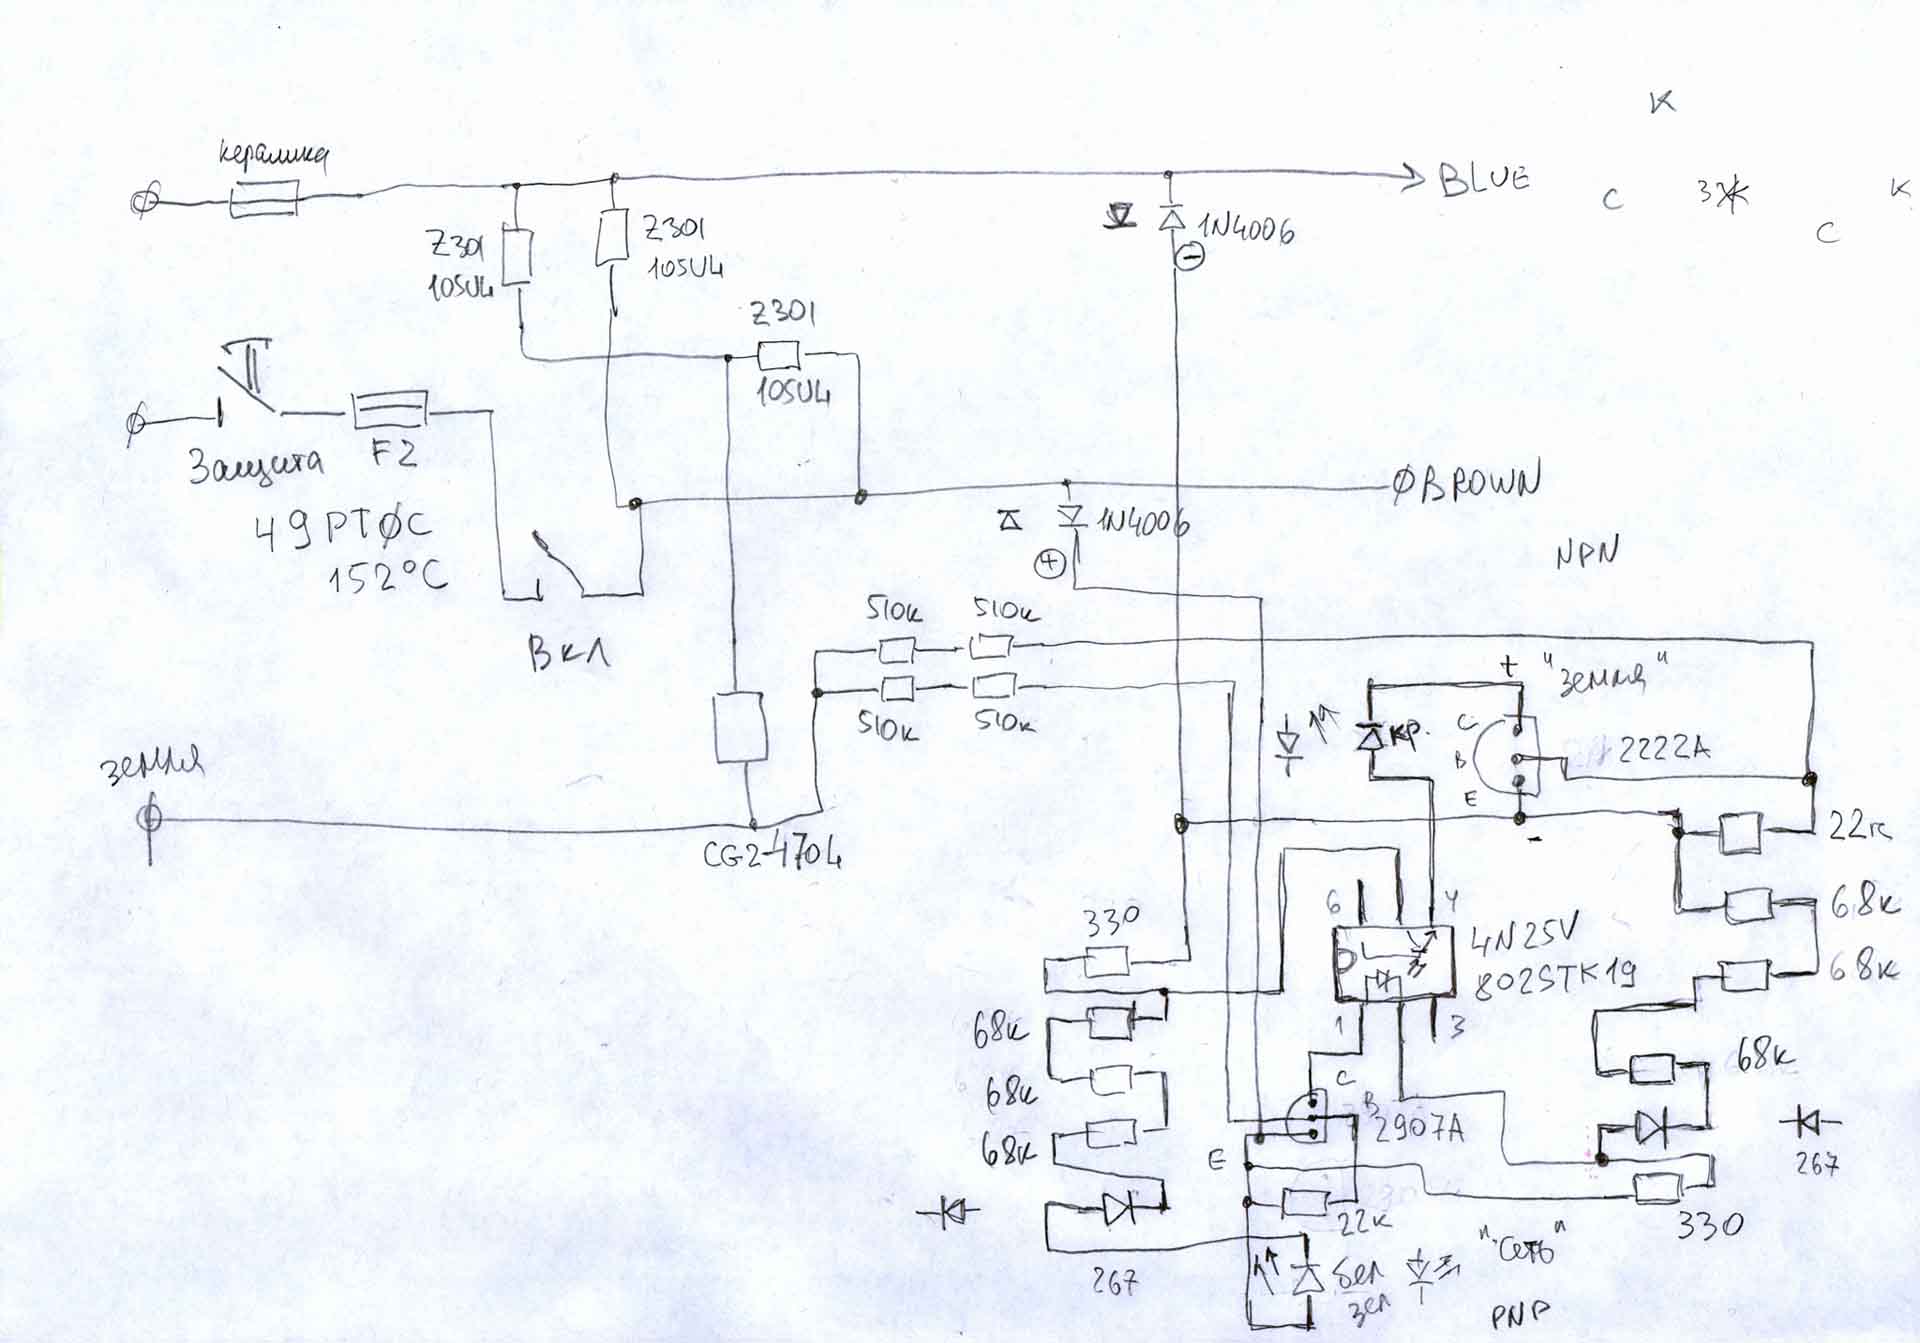 керамика
BLUE
K
C
3Ж
K
C
Z301
105U4
Z301
105U4
1N4006
Z301
105U4
Защита
F2
49PTØC
152°C
Вкл
ØBROWN
1N4006
NPN
510к
510к
510к
510к
земля
CG2-470L
+
"земля"
кр.
C
B
E
2222A
-
22к
6
4
4N25V
802STK19
1
3
68к
68к
330
68к
68к
68к
267
68к
267
C
B
2907A
E
22к
330
"Сеть"
бел
зел
PNP